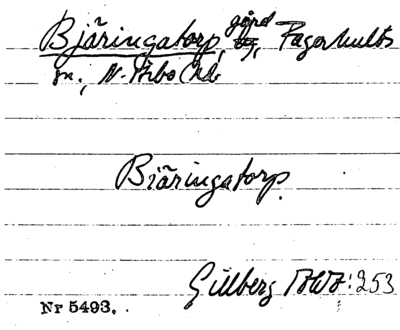 Bjäringatorp, gård, Fagerhults
sn., N. Åsbo hd.
Biäringatorp.
Gillberg 253
Nr 5493.